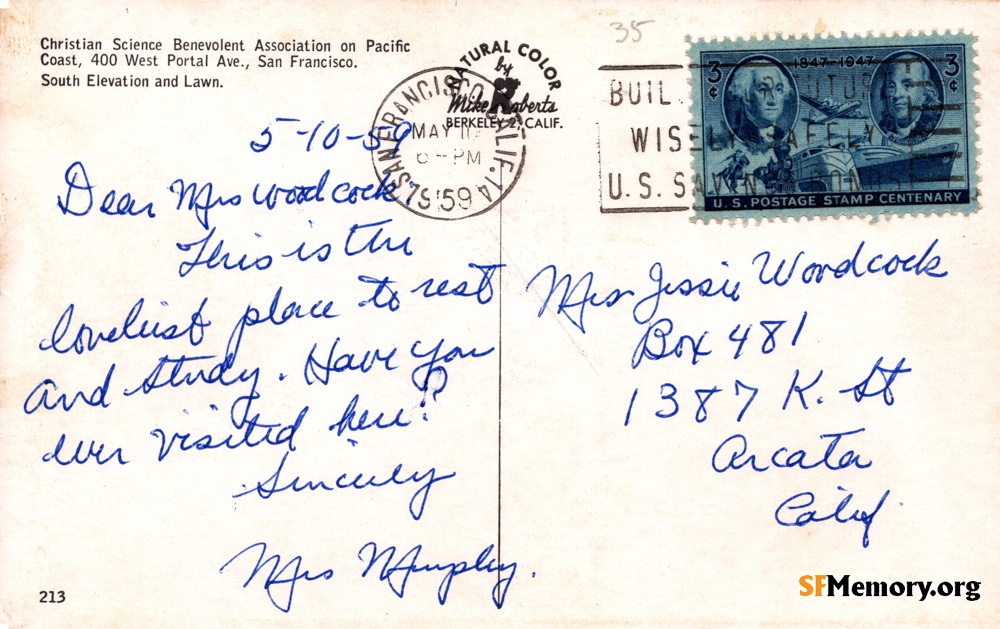 Christian Science Benevolent Association on Pacific
Coast, 400 West Portal Ave., San Francisco.
South Elevation and Lawn.
35
NATURAL COLOR
by
Mike Roberts
BERKELEY 2, CALIF.
SAN FRANCISCO, CALIF. 14
MAY 10
6 - PM
1959
BUIL
WISELY SAFELY
U.S. SAVINGS BONDS
3¢ 1847-1947 3¢
U.S. POSTAGE STAMP CENTENARY
5-10-59
Dear Mrs Woodcock,
This is the
loveliest place to rest
and study. Have you
ever visited here?
Sincerely
Mrs Murphy.
Mrs Jessie Woodcock
Box 481
1387 K. St
Arcata
Calif
213
SFMemory.org